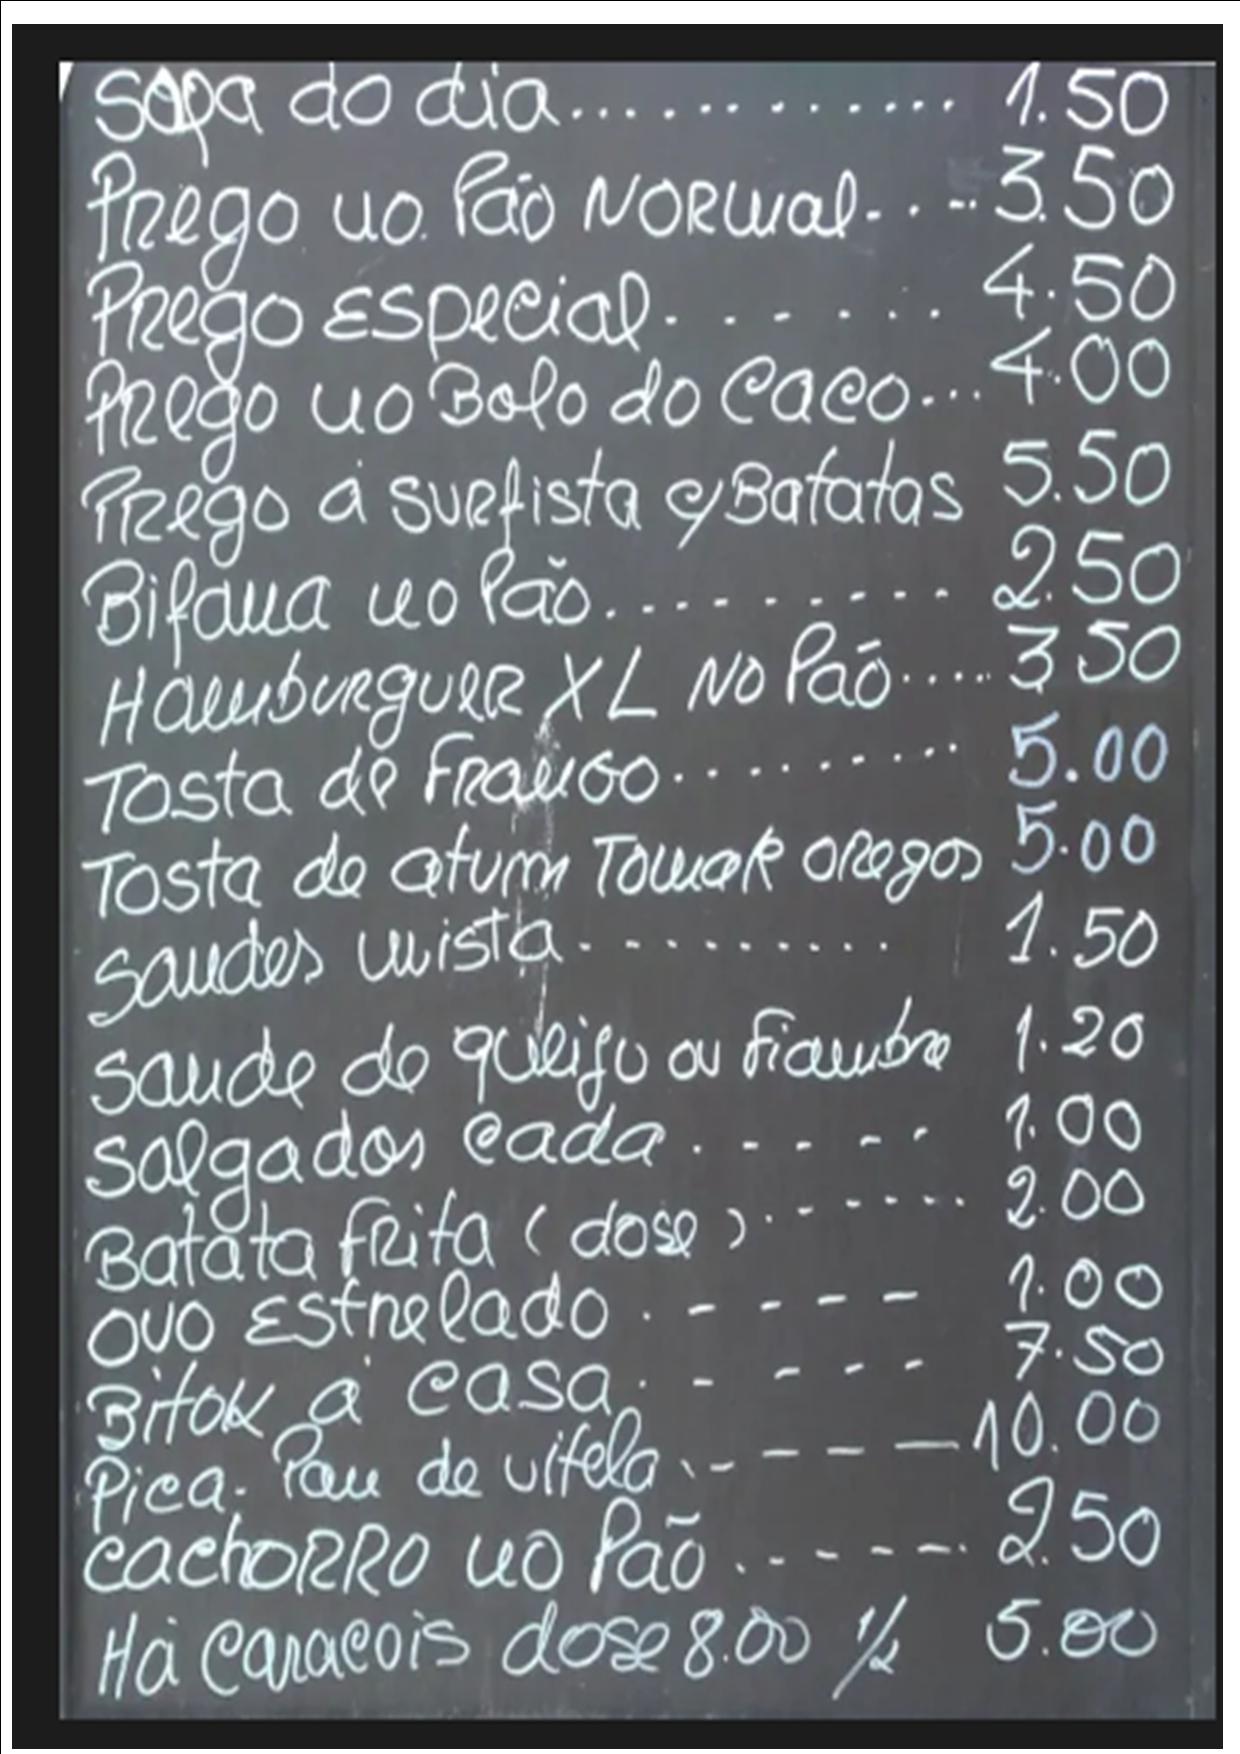 Sopa do dia............ 1.50
Prego no Pão NORmal-..-- 3.50
Prego Especial....... 4.50
Prego no Bolo do caco... 4.00
Prego á surfista c/Batatas 5.50
Bifana no Pão.--------- 2.50
Hamburguer XL NO Pão..... 3 50
Tosta de Frango......... 5.00
Tosta de atum Tomar oregos 5.00
Sandes mista.--------- 1.50
Sande de queijo ou fiambre 1.20
Salgados cada.----- 1.00
Batata frita (dose)------ 2.00
OVO Estrelado.----- 1.00
Bitok á casa.----- 7.50
Pica-Pau de vitela.----- 10.00
Cachorro no Pão.-----. 2.50
Há caracois dose 8.00 1/2 5.00